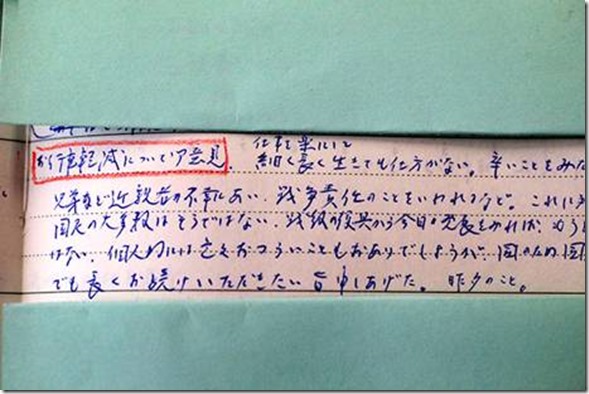 お行事軽減について御意見。
仕事を楽にして
細く長く生きても仕方がない。辛いことをみた
兄弟など近親者の不幸にあい、戦争責任のことをいわれるなど。これに
国民の大多数はそうではない。戦後の復興から今日の発展をみれば、もう
はない。個人的には色々おつらいこともおありでしょうが、国のため国
でも長くお続けいただきたい旨申しあげた。昨夕のこと。